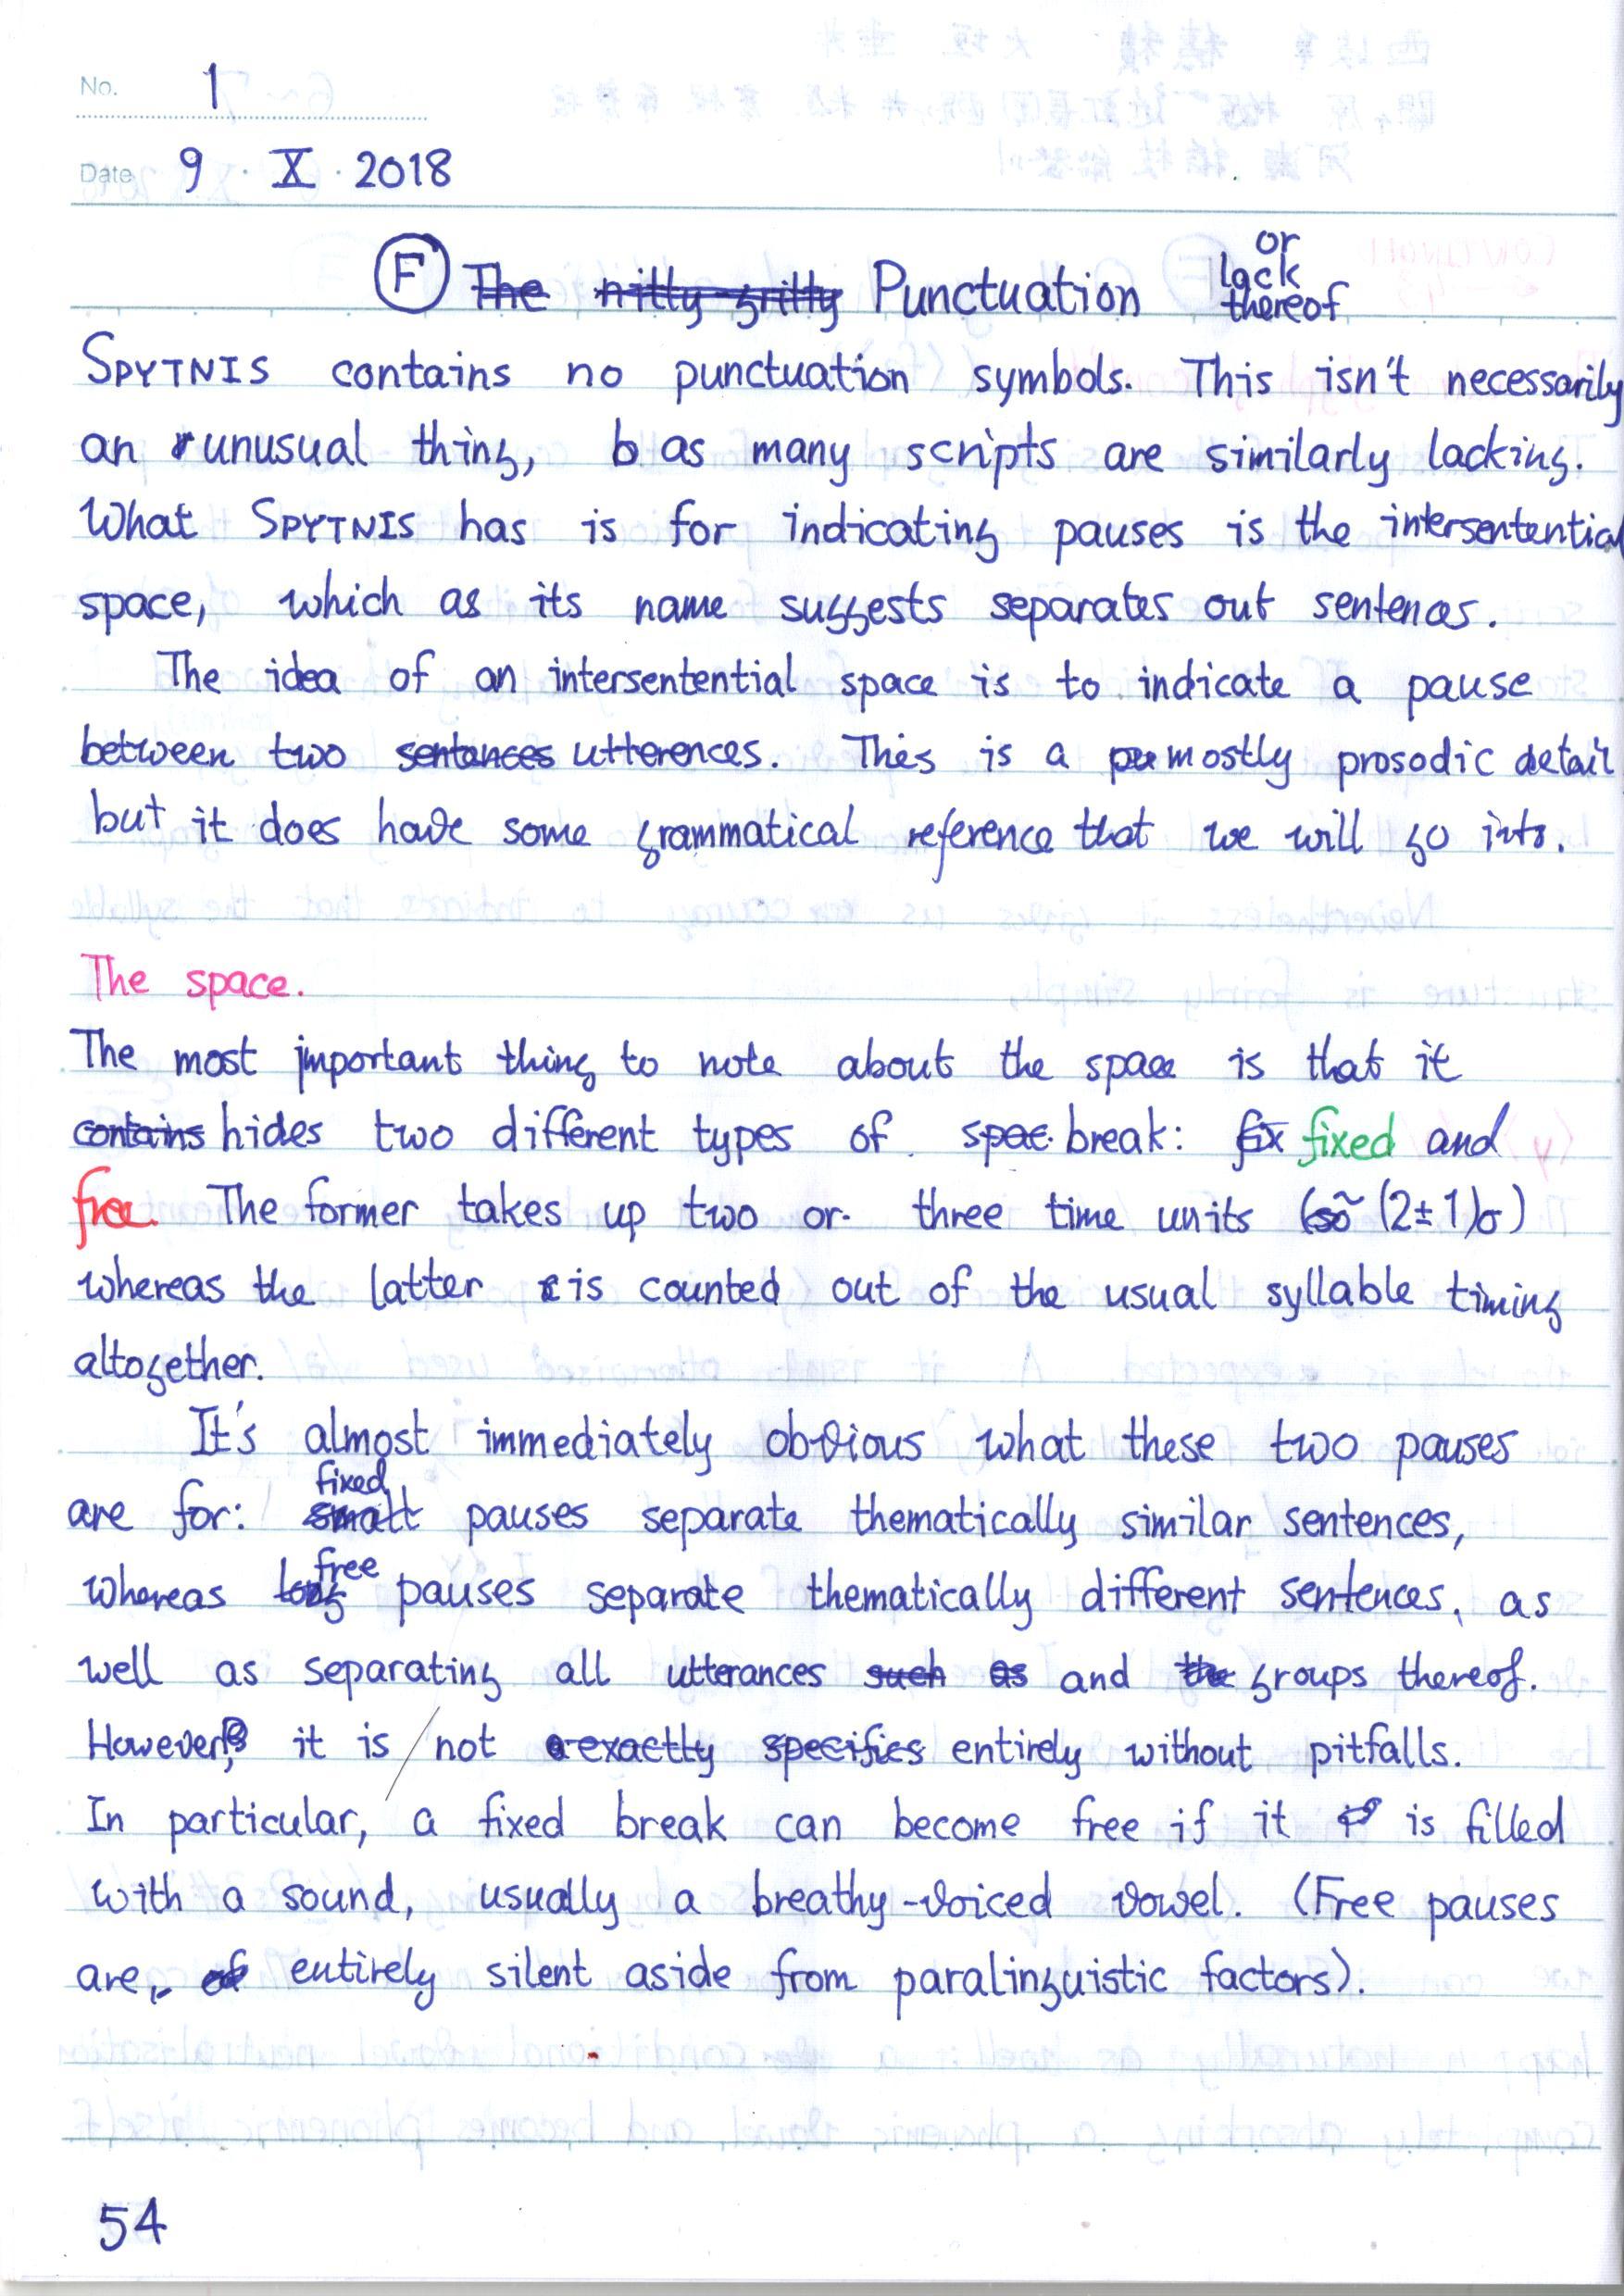 No. 1
Date 9 · X · 2018
Ⓕ The nitty-gritty Punctuation or lack thereof
SPYTNIS contains no punctuation symbols. This isn't necessarily
an unusual thing, b as many scripts are similarly lacking.
What SPYTNIS has is for indicating pauses is the intersentential
space, which as its name suggests separates out sentences.
The idea of an intersentential space is to indicate a pause
between two sentances utterences. This is a pu mostly prosodic detail
but it does have some grammatical reference that we will go into.
The space.
The most important thing to note about the space is that it
contains hides two different types of spac break: fix fixed and
free. The former takes up two or three time units (so (2±1)σ)
whereas the latter is counted out of the usual syllable timing
altogether.
It's almost immediately obvious what these two pauses
are for: small fixed pauses separate thematically similar sentences,
whereas long free pauses separate thematically different sentences, as
well as separating all utterances such as and the groups thereof.
However, it is not exactly specifics entirely without pitfalls.
In particular, a fixed break can become free if it is filled
with a sound, usually a breathy-voiced vowel. (Free pauses
are, of entirely silent aside from paralinguistic factors).
54